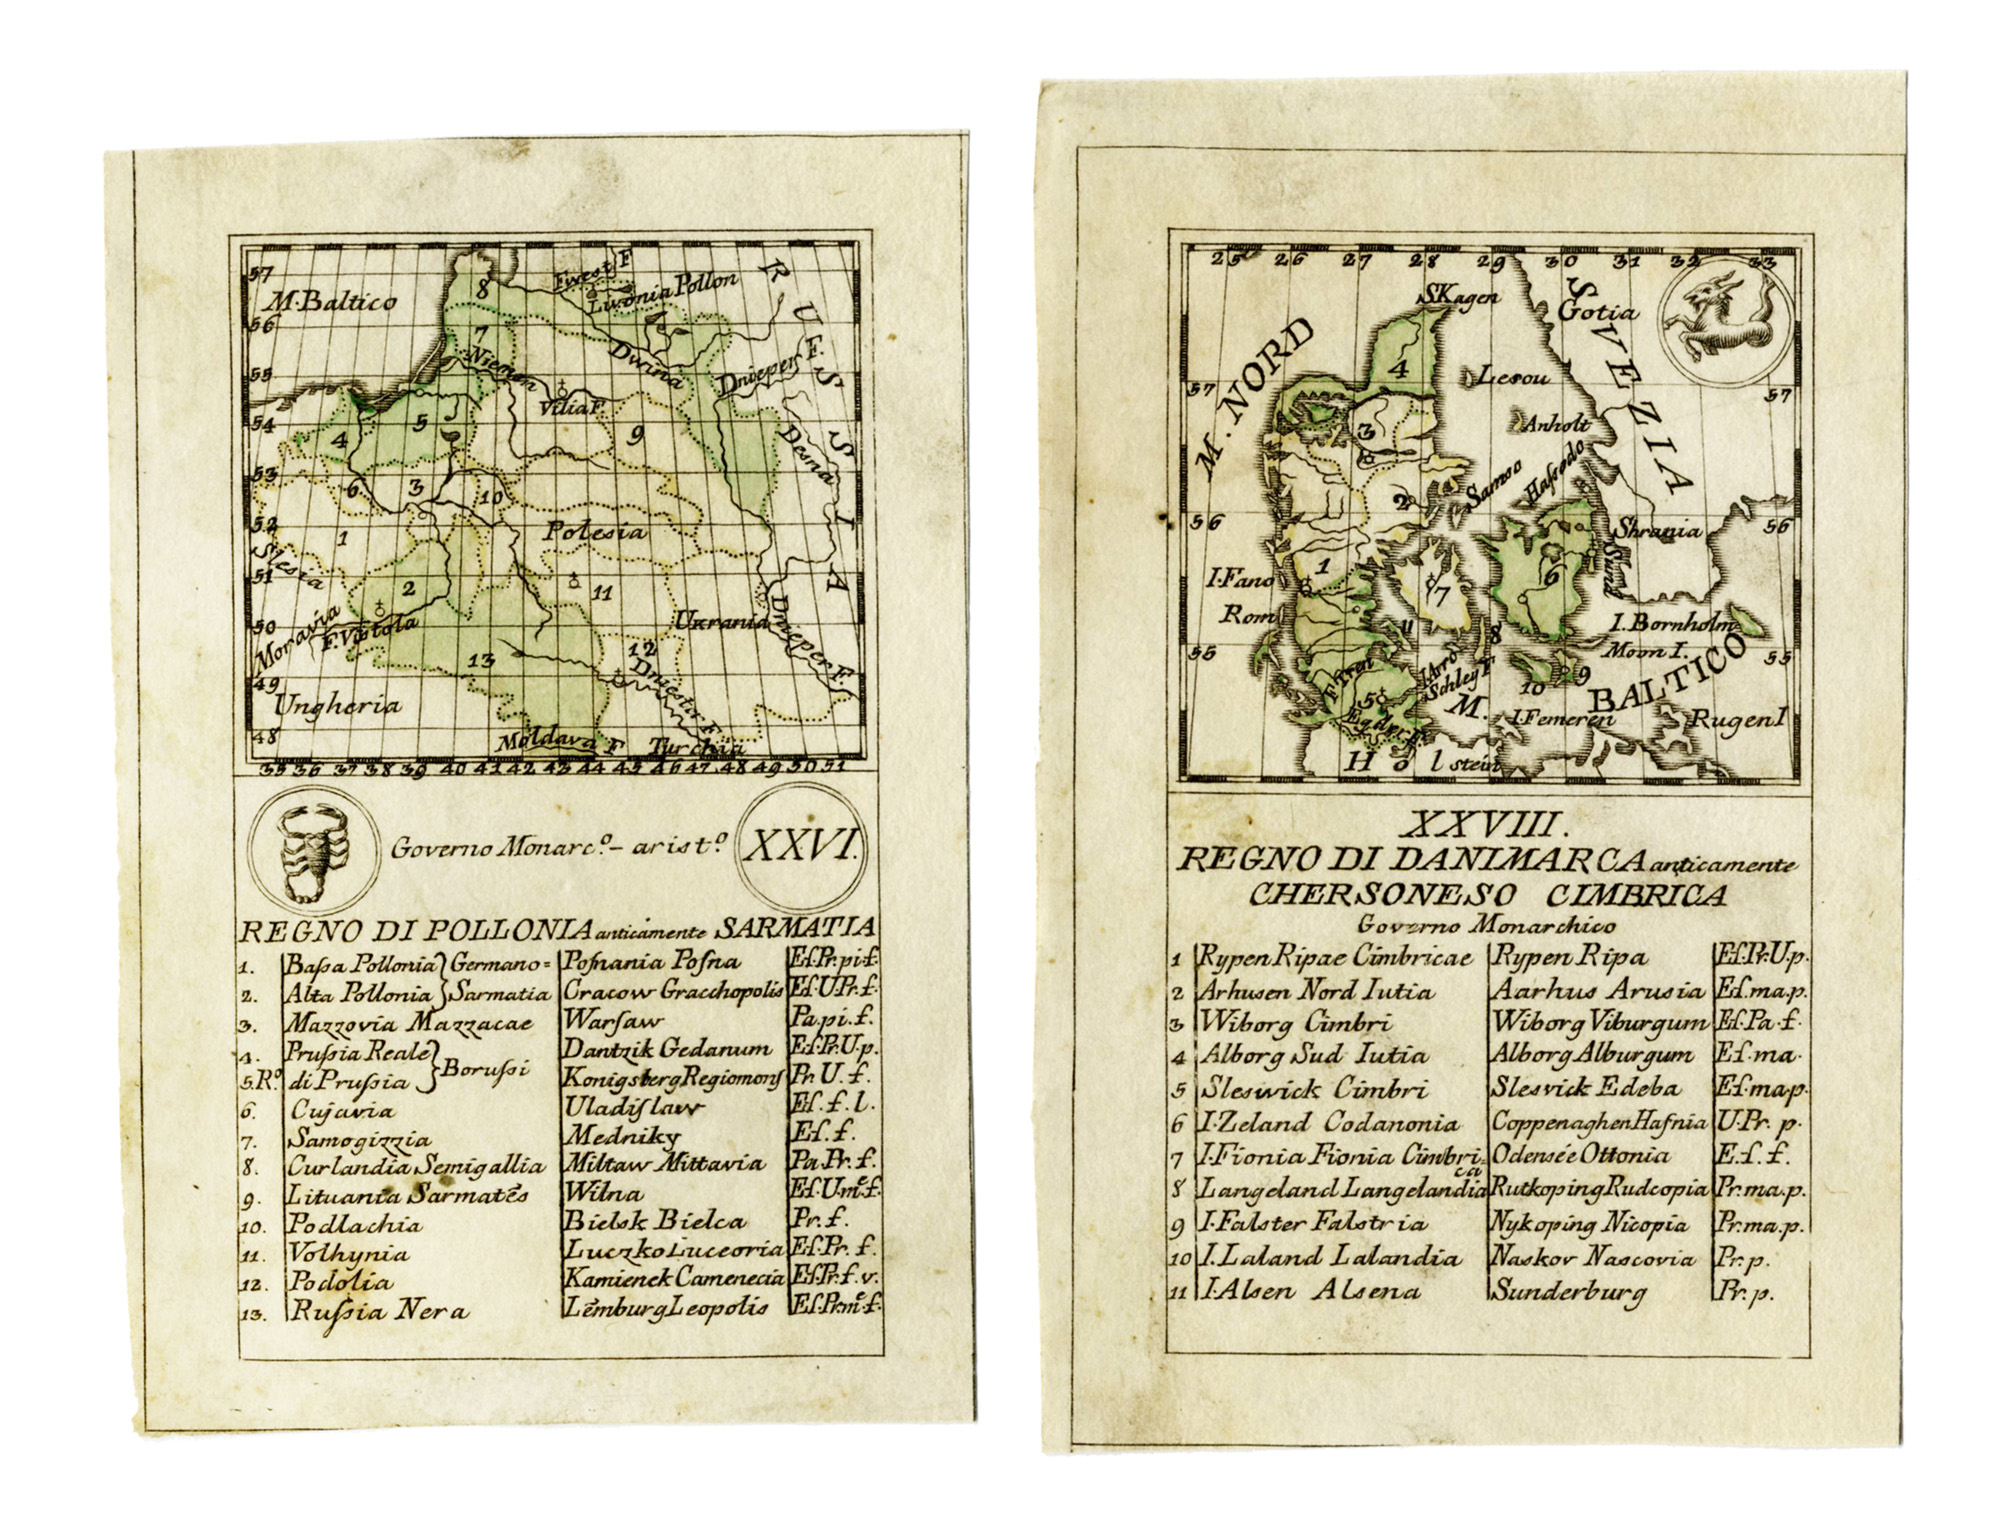 57
M. Baltico
56
55
54
53
52
51
50
49
48
8
7
Livonia Pollon
RUSSIA
Niemen
Dwina
Dnieper F.
Vilia F.
Desna
4
5
9
6
3
10
1
Polesia
Slesia
2
11
Moravia
F. Vistola
Ukrania
Dnieper F.
12
13
Dniester F.
Ungheria
Moldava F
Turchia
35 36 37 38 39 40 41 42 43 44 45 46 47 48 49 50 51
Governo Monarc.o – arist.o
XXVI.
REGNO DI POLLONIA anticamente SARMATIA
1. Baſsa Pollonia } Germano= Poſnania Poſna Eſ.Pr.pi.f.
2. Alta Pollonia } Sarmatia Cracow Gracchopolis Eſ.U.Pr.f.
3. Mazzovia Mazzacae Warſaw Pa.pi.f.
4. Pruſsia Reale } Boruſsi Dantzik Gedanum Eſ.Pr.U.p.
5. R.o di Pruſsia } Konigsberg Regiomonſ Pr U. f.
6. Cujavia Uladiſlaw Eſ. f. l.
7. Samogizzia Medniky Eſ. f.
8. Curlandia Semigallia Miltaw Mittavia Pa.Pr. f.
9. Lituania Sarmatēs Wilna Eſ.U.me.f.
10. Podlachia Bielsk Bielca Pr. f.
11. Volhynia Luczko Luceoria Eſ.Pr. f.
12. Podolia Kamienek Camenecia Eſ.Pr.f.v.
13. Ruſsia Nera Lemburg Leopolis Eſ.Pr.me.f.
25 26 27 28 29 30 31 32 33
S Kagen
Gotia
SVEZIA
M. NORD
4
57
Lesou
57
3
Anholt
2
Samso
56
Shrania
56
Sund
1
I. Fano
7
6
Rom
I. Bornholm
55
11
8
Moon I.
55
I. Arro
Schley F
9
10
5
M. BALTICO
I. Femeren
Rugen I
Holstein
XXVIII.
REGNO DI DANIMARCA anticamente
CHERSONESO CIMBRICA
Governo Monarchico
1 Rypen Ripae Cimbricae Rypen Ripa Eſ.Pr.U.p.
2 Arhusen Nord Iutia Aarhus Arusia Eſ.ma.p.
3 Wiborg Cimbri Wiborg Viburgum Eſ.Pa.f.
4 Alborg Sud Iutia Alborg Alburgum Eſ.ma.
5 Sleswick Cimbri Slesvick Edeba Eſ.ma.p.
6 I. Zeland Codanonia Coppenaghen Hafnia U.Pr. p.
7 I. Fionia Fionia Cimbrica Odensée Ottonia E.ſ. f.
8 Langeland Langelandia Rutkoping Rudcopia Pr.ma.p.
9 I. Falster Falstria Nykoping Nicopia Pr.ma.p.
10 I. Laland Lalandia Naskov Nascovia Pr.p.
11 I. Alsen Alsena Sunderburg Pr.p.